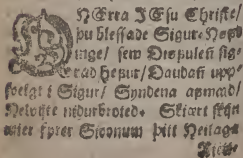 HErra JEsu Christe/
þu blessade Sigur-Høfd
inge/ sem Diøfulen sig-
rad hefur/ Daudan upp-
svelgt i Sigur/ Syndena afmad/
Helvijte nidurbroted. Skiært
mier fyrer Sioonum þitt Heilaga